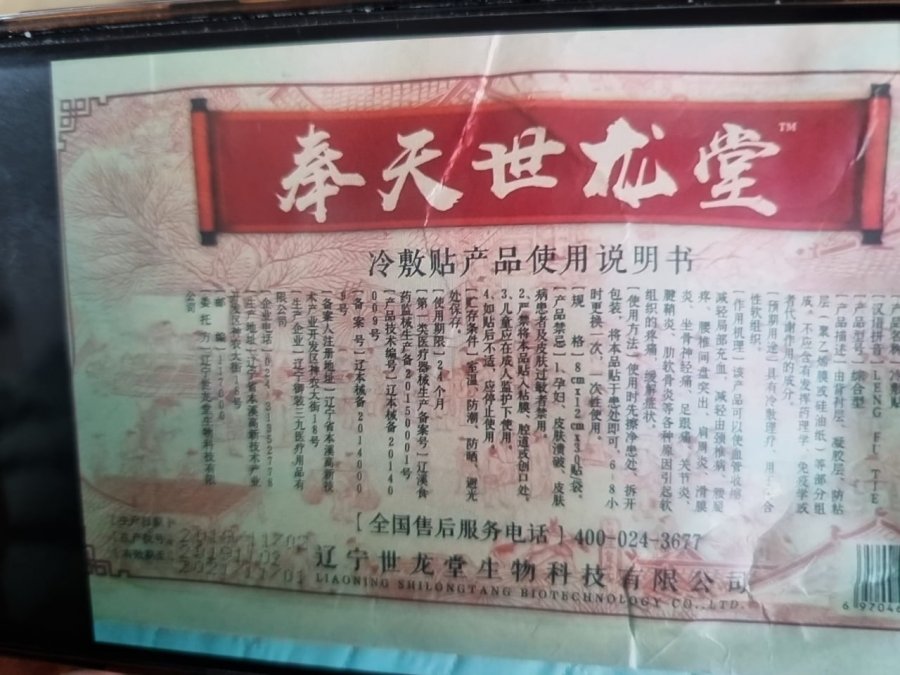 奉天世龙堂™
冷敷贴产品使用说明书
[汉语拼音] LENG FU TIE
[产品型号] 综合型
[产品描述] 由背衬层、凝胶层、防粘
层(聚乙烯膜或硅油纸)等部分组
成。不应含有发挥药理学、免疫学或
者代谢作用的成分。
[预期用途] 具有冷敷理疗,用于闭合
性软组织。
[作用机理] 该产品可以使血管收缩
减轻局部充血,减轻由颈椎病、腰腿
疼、腰椎间盘突出、肩周炎、滑膜
炎、坐骨神经痛、足跟痛、关节炎、
腱鞘炎、肋软骨炎等各种原因引起软
组织的疼痛,缓解症状。
[使用方法] 使用时先擦净患处,拆开
包装,将本品贴于患处即可。6-8小
时更换一次,一次性使用。
[规 格] 8cm×12cm×30贴/袋
[产品禁忌] 1.孕妇、皮肤溃破、皮肤
病患者及皮肤过敏者禁用
2.严禁将本品贴入粘膜、腔道或创口处。
3.儿童应在成人监护下使用。
4.如贴后不适,应停止使用
[贮存条件] 室温、防潮、防晒、避光
处保存。
[使用期限] 24个月
[第一类医疗器械生产备案号] 辽溪食
药监械生产备20150001号
[产品技术编号] 辽本械备20140
009号
[备 案 号] 辽本械备2014000
9号
[备案人注册地址] 辽宁省本溪高新技
术产业开发区神农大街18号
[生产企业] 辽宁御装三九医疗用品有
限公司
[生产地址] 辽宁省本溪高新技术产业
开发区神农大街18号
[邮 编] 117000
[委 托 方] 辽宁世龙堂生物科技有限
公司
[全国售后服务电话] 400-024-3677
辽宁世龙堂生物科技有限公司
LIAONING SHILONGTANG BIOTECHNOLOGY CO.,LTD.